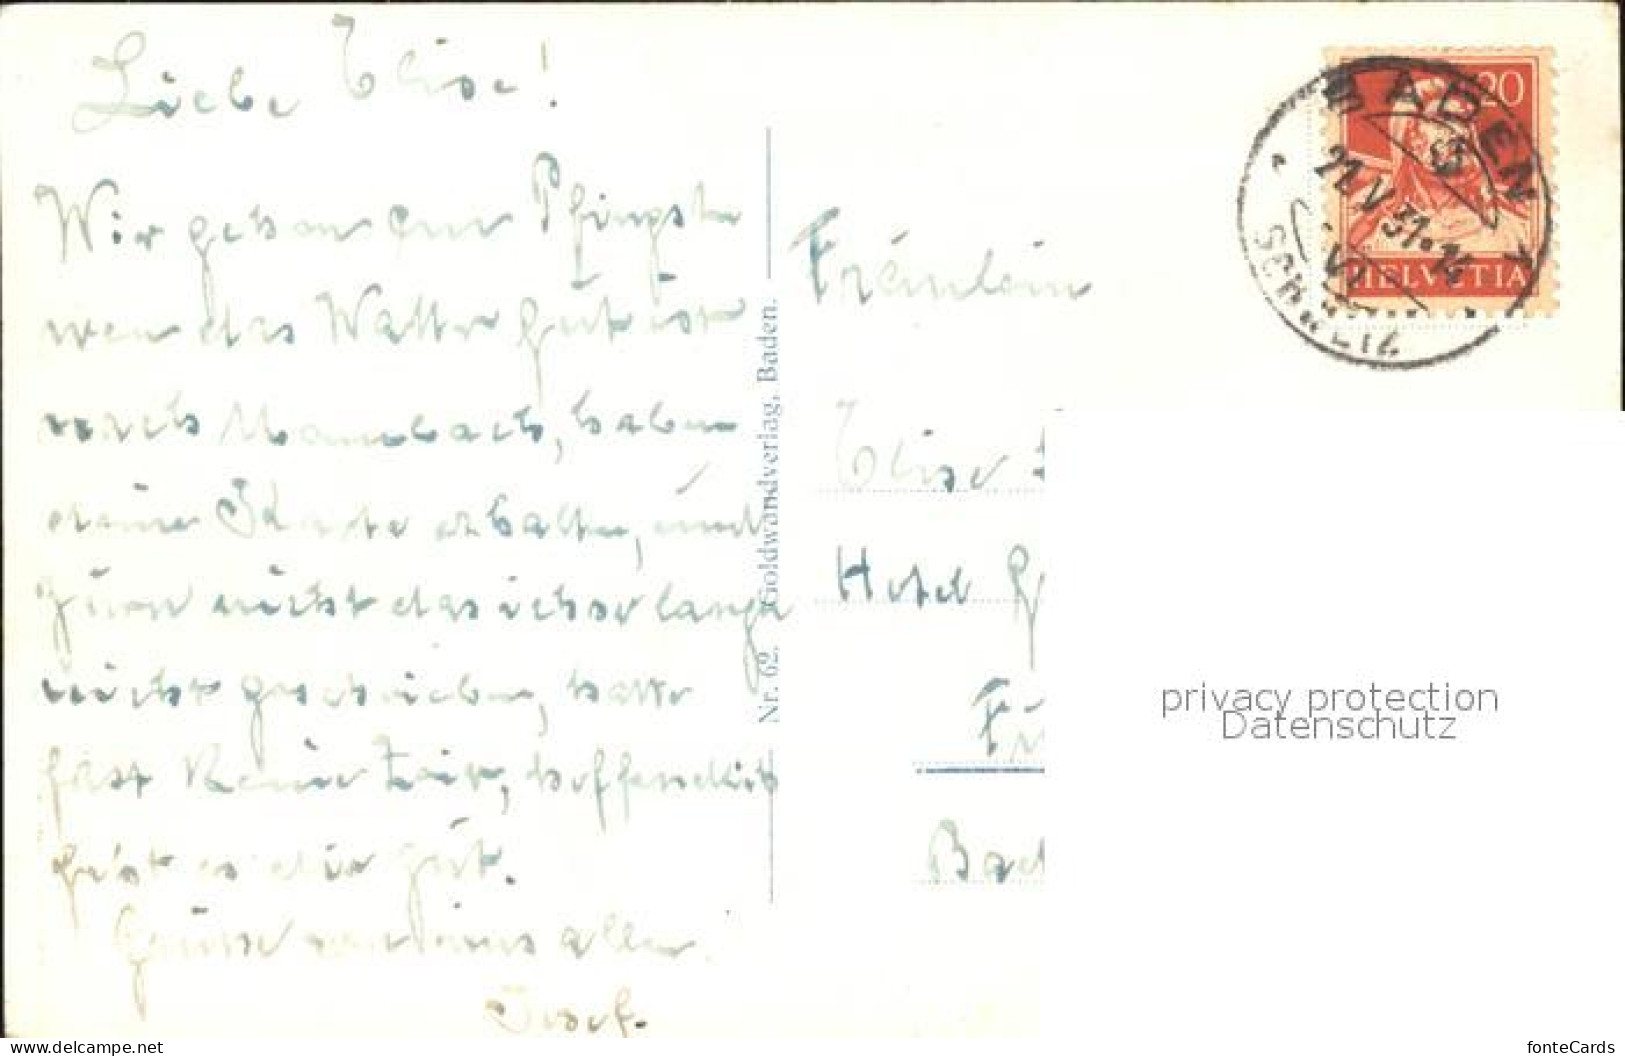 Liebe Elise!
Wir gehen zur Pfingsten
wen das Watter gut ist
nach Mambach, haben
deine Karte erhalten, und
zürn nicht das ich so lange
nicht geschrieben, hatte
fast Keine Zeit, hoffendlich
geht es dir gut.
Grüsse von uns allen
Josef.
Nr. 62. Goldwandverlag, Baden.
Fräulein
Elise
Hotel
Bad
20
HELVETIA
BADEN
21.V.31.14
VI
SCHWEIZ
privacy protection
Datenschutz
www.delcampe.net
fonteCards